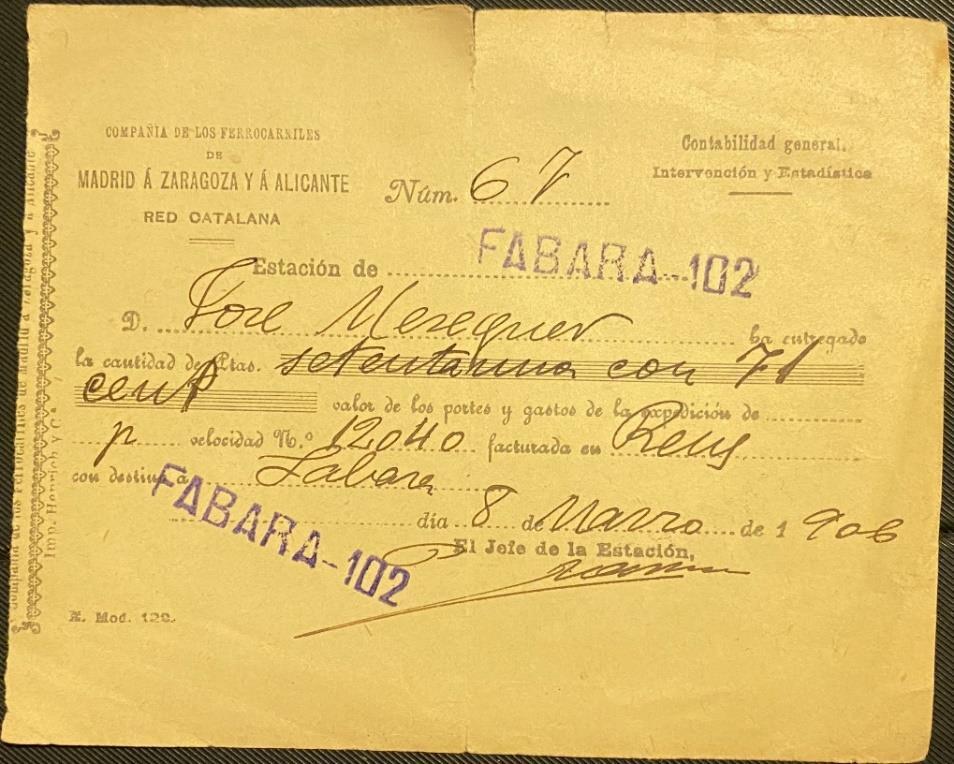 COMPAÑIA DE LOS FERROCARRILES
DE
MADRID Á ZARAGOZA Y Á ALICANTE
RED CATALANA
Contabilidad general.
Intervención y Estadística
Núm. 67
Estación de FABARA-102
D. José Meseguer ha entregado
la cantidad de Ptas. setentauna con 71
cents valor de los portes y gastos de la expedición de
p velocidad N.º 12040 facturada en Reus
con destino á Fabara
FABARA-102
día 8 de Marzo de 1906
El Jefe de la Estación,
Mod. 128.
Compañia de los Ferrocarriles de Madrid á Zaragoza y á Alicante